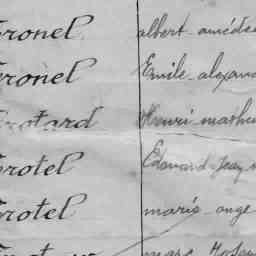 ronel albert amédée
ronel Emile alexand
rotard Henri mathu
rotel Edouard Jean
rotel marie ange
marc